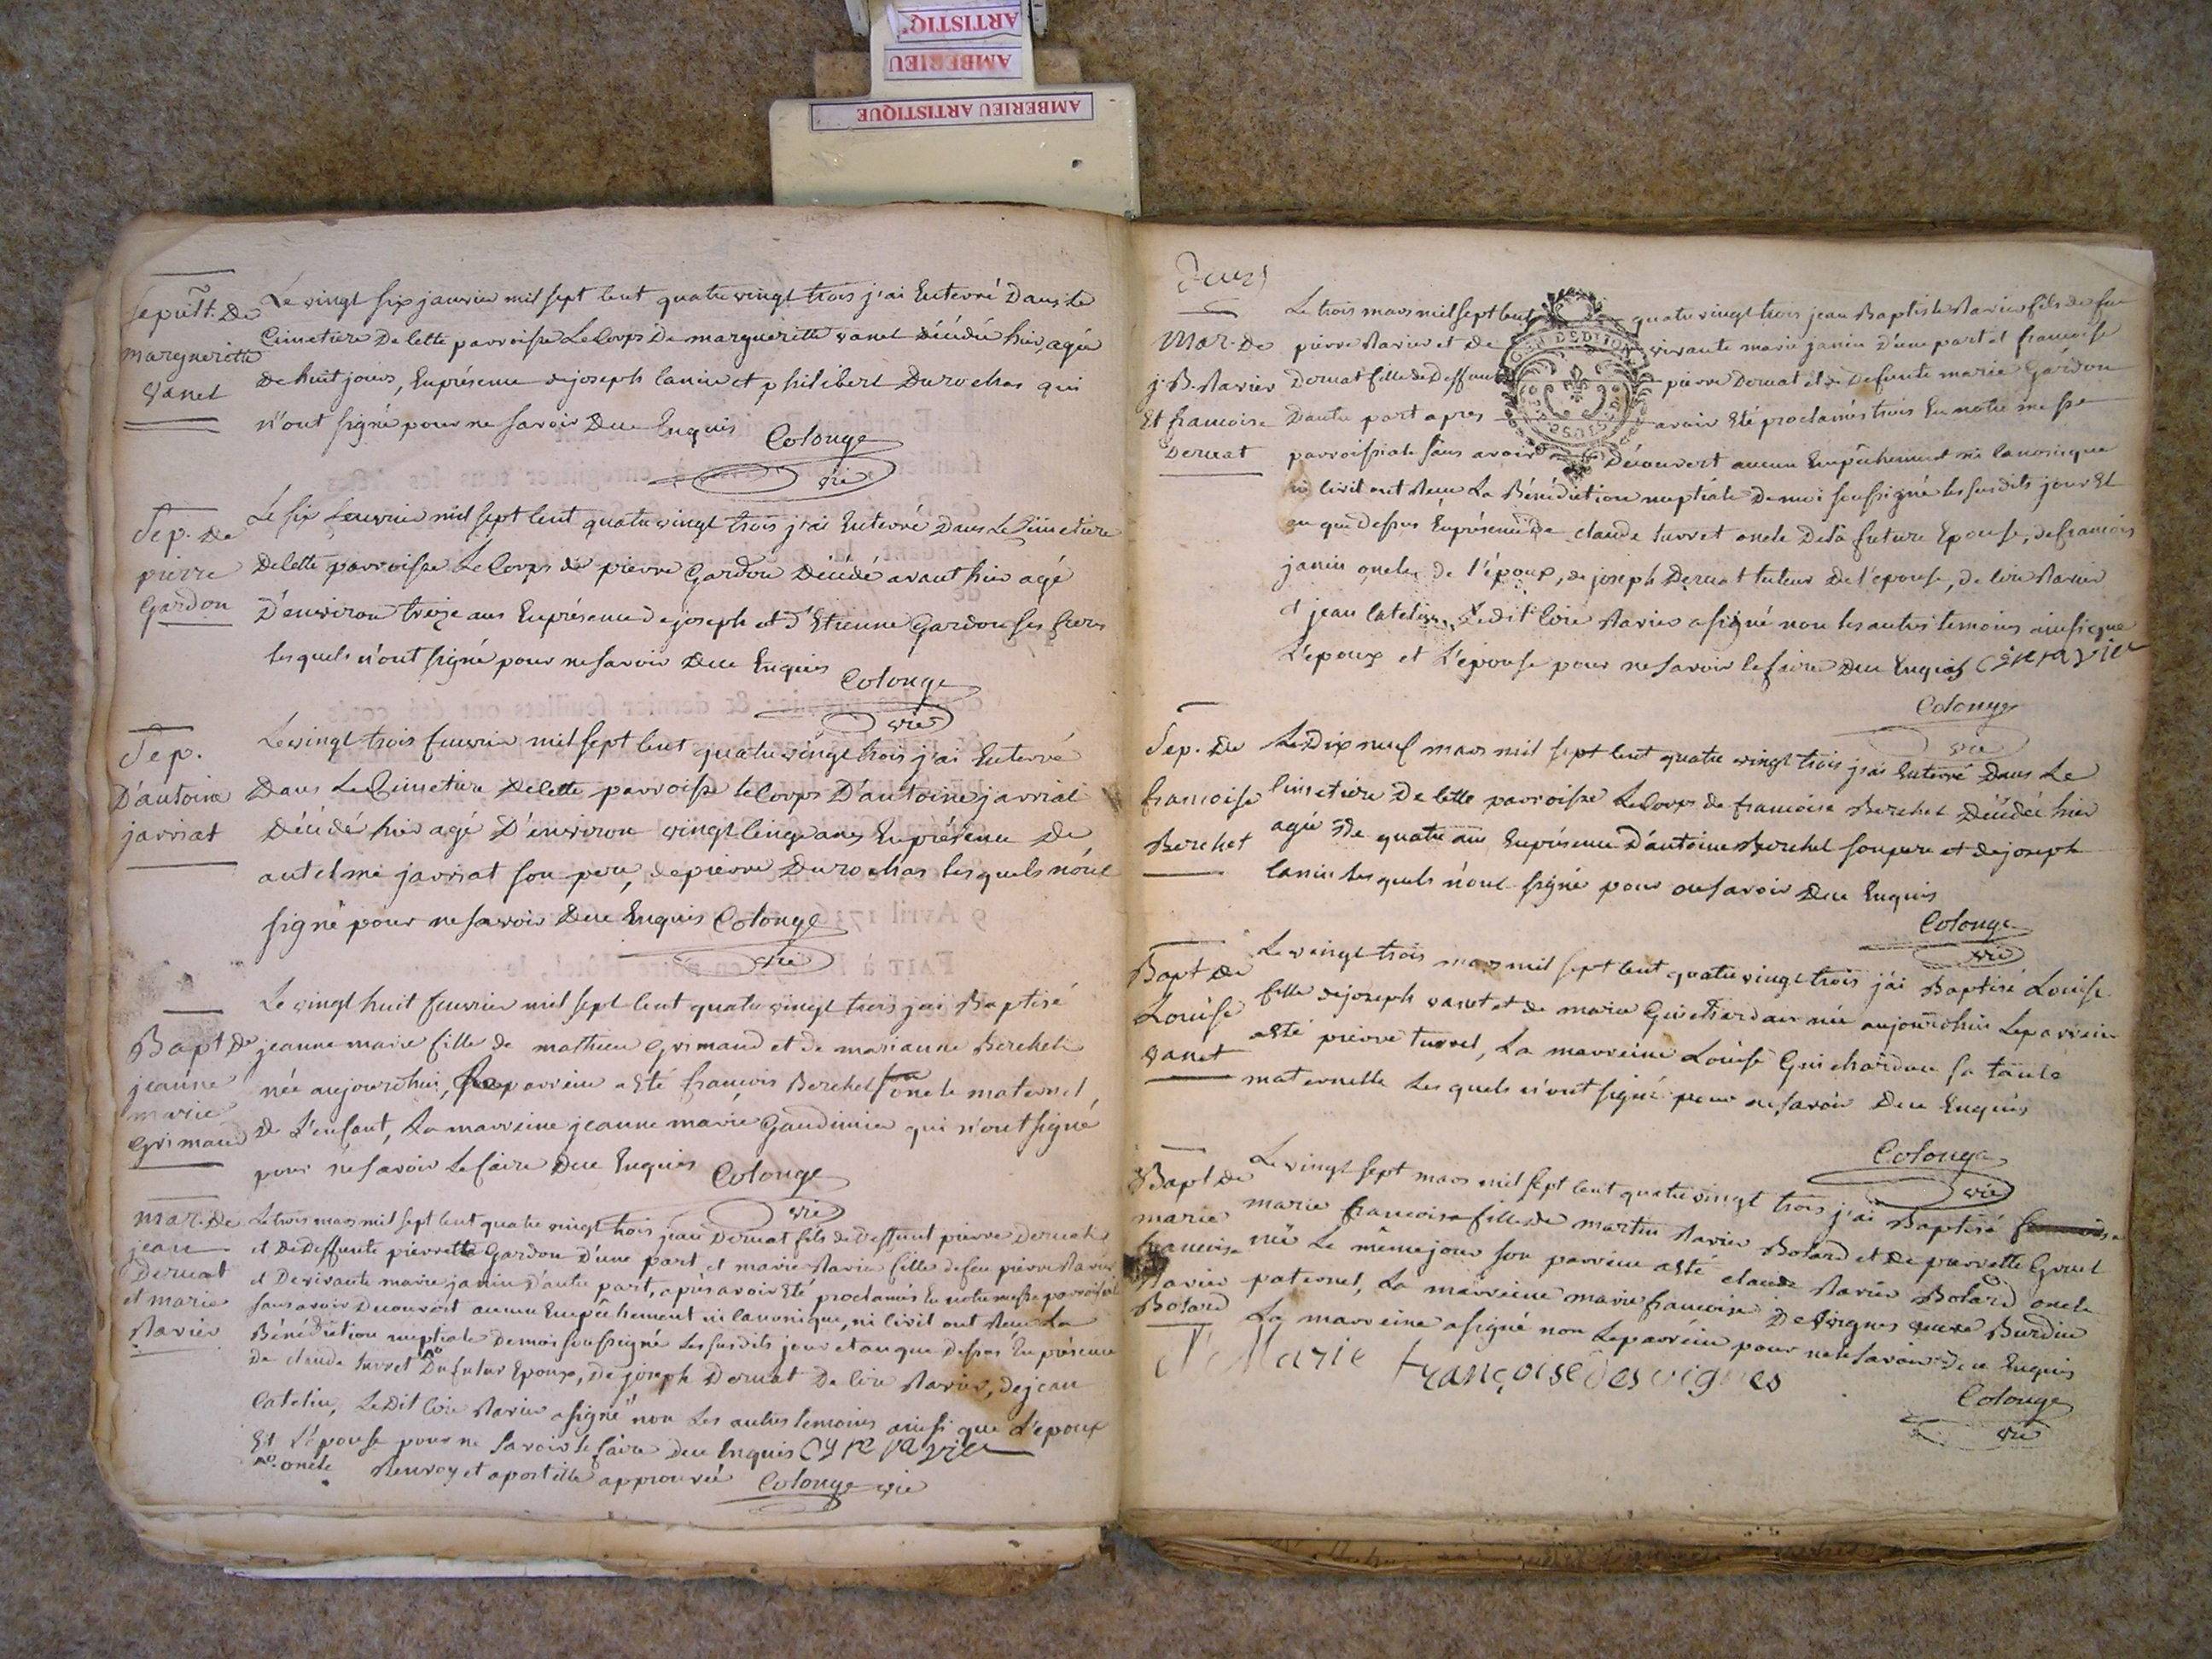 AMBERIEU ARTISTIQUE
AMBERIEU
ARTISTIQ
Sepult. De
margueritte
vanet
Le vingt six janvier mil sept cent quatre vingt trois j'ai Enterré Dans le
Cimetiere De cette parroisse Le Corps De margueritte vanet décédée hier, agée
De huit jours, En présence de joseph Canin et philibert Durochas qui
n'ont signé pour ne savoir Deue Enquis Colonge
vic
Sep. De
pierre
Gardon
Le six fevrier mil sept cent quatre vingt trois j'ai Enterré Dans Le Cimetiere
De cette parroisse Le Corps de pierre Gardon Décédé avant hier agé
D'environ treize ans En présence de joseph et d'Etienne Gardon ses freres
lesquels n'ont signé pour ne savoir Deue Enquis Colonge
vic
Sep.
D'antoine
jarriat
Le vingt trois fevrier mil sept cent quatre vingt trois j'ai Enterré
Dans Le Cimetiere De cette parroisse le Corps D'antoine jarriat
Décédé hier agé D'environ vingt cinq ans En présence De
antelme jarriat son pere, de pierre Durochas lesquels n'ont
signé pour ne savoir Deue Enquis Colonge
vic
Bapt De
jeanne
marie
Grimaud
Le vingt huit fevrier mil sept cent quatre vingt trois j'ai Baptisé
jeanne marie fille de mathieu Grimaud et de marianne Berchet
née aujourdhui, Le parrein a Eté françois Berchet oncle maternel
De L'enfant, La marreine jeanne marie Gaudimier qui n'ont signé
pour ne savoir Le faire Deue Enquis Colonge
vic
Mar. De
jean
Deruat
et marie
Ravier
Le trois mars mil sept cent quatre vingt trois jean Deruat fils de Deffunt pierre Deruat
et De deffunte pierrette Gardon D'une part et marie Ravier fille de feu pierre Ravier
et De vivante marie janin D'autre part, après avoir Eté proclamés En notre messe parroissiale
sans avoir Decouvert aucun Empêchement ni canonique, ni civil ont Receu La
Bénédiction nuptiale De moi soussigné Les susdits jour et an que Dessus En présence
De claude turret Du futur Epoux, De joseph Deruat De Cire Ravier, de jean
Catelin, Ledit Cire Ravier a signé non Les autres temoins ainsi que L'epoux
Et L'épouse pour ne savoir le faire Deue Enquis Cyre ravier
oncle Renvoy et apostille approuvée Colonge vic
Mar. De
j. B. Ravier
Et françoise
Deruat
GEN DEDITION
Le trois mars mil sept cent quatre vingt trois jean Baptiste Ravier fils de feu
pierre Ravier et de vivante marie janin D'une part et françoise
Deruat fille de Deffunt pierre Deruat et De Defunte marie Gardon
Dautre part apres avoir Eté proclamés trois En notre messe
parroissiale sans avoir Découvert aucun Empêchement ni canonique
ni civil ont Receu La Bénédiction nuptiale De moi soussigné les susdits jour Et
an que dessus En présence De claude turret oncle De la future Epouse, de francois
janin oncle de l'époux, de joseph Deruat tuteur De l'epouse, de Cire Ravier
et jean Catelin, Ledit Cire Ravier a signé non les autres temoins ainsi que
L'epoux et L'épouse pour ne savoir le faire Deue Enquis Cyre ravier
Colonge
vic
Sep. De
francoise
Berchet
Le Dix neuf mars mil sept cent quatre vingt trois j'ai Enterré Dans Le
Cimetiere De cette parroisse Le Corps de francoise Berchet Décédée hier
agée De quatre ans En présence D'antoine Berchet son pere et de joseph
Canin lesquels n'ont signé pour ne savoir Deue Enquis
Colonge
vic
Bapt De
Louise
vanet
Le vingt trois mars mil sept cent quatre vingt trois j'ai Baptisé Louise
fille de joseph vanet et de marie Guichardan née aujourdhui Le parrein
a Eté pierre turrel, La marreine Louise Guichardan sa tante
maternelle Lesquels n'ont signé pour ne savoir Deue Enquis
Colonge
vic
Bapt De
marie
francoise
Ravier
Botard
Le vingt sept mars mil sept cent quatre vingt trois j'ai Baptisé
marie francoise fille De martin Ravier Botard et De pierrette Gruel
née Le même jour son parrein a Eté claude Ravier Botard oncle
paternel, La marreine marie francoise Desvignes Burdin
La marreine a signé non Le parrein pour ne le savoir Deue Enquis
Marie françoise desvignes
Colonge
vic